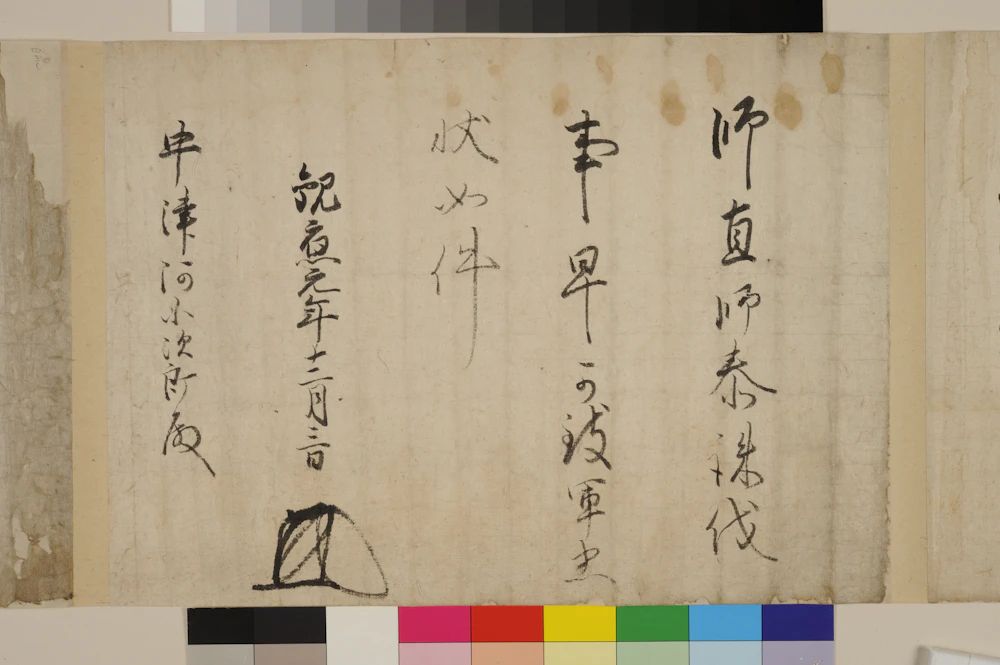 師直師泰誅伐
事早可致軍忠
状如件
観應元年十二月三日
中津河小次郎殿